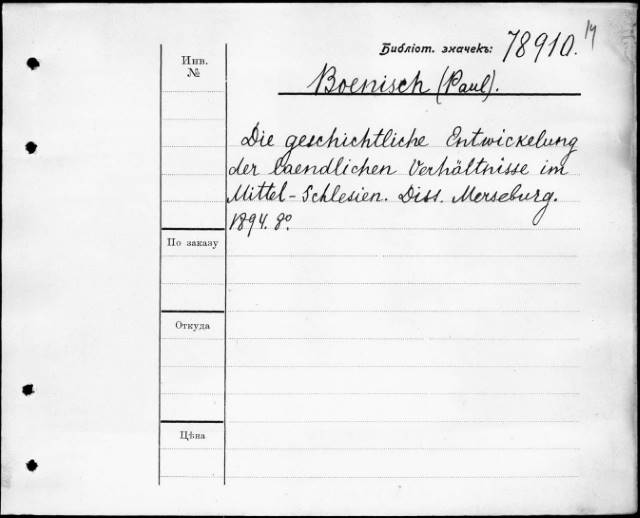 14
Библіот. значекъ: 78910.
Инв. №
Boenisch (Paul).
Die geschichtliche Entwickelung
der laendlichen Verhältnisse im
Mittel-Schlesien. Diss. Merseburg.
1894. 8º.
По заказу
Откуда
Цѣна